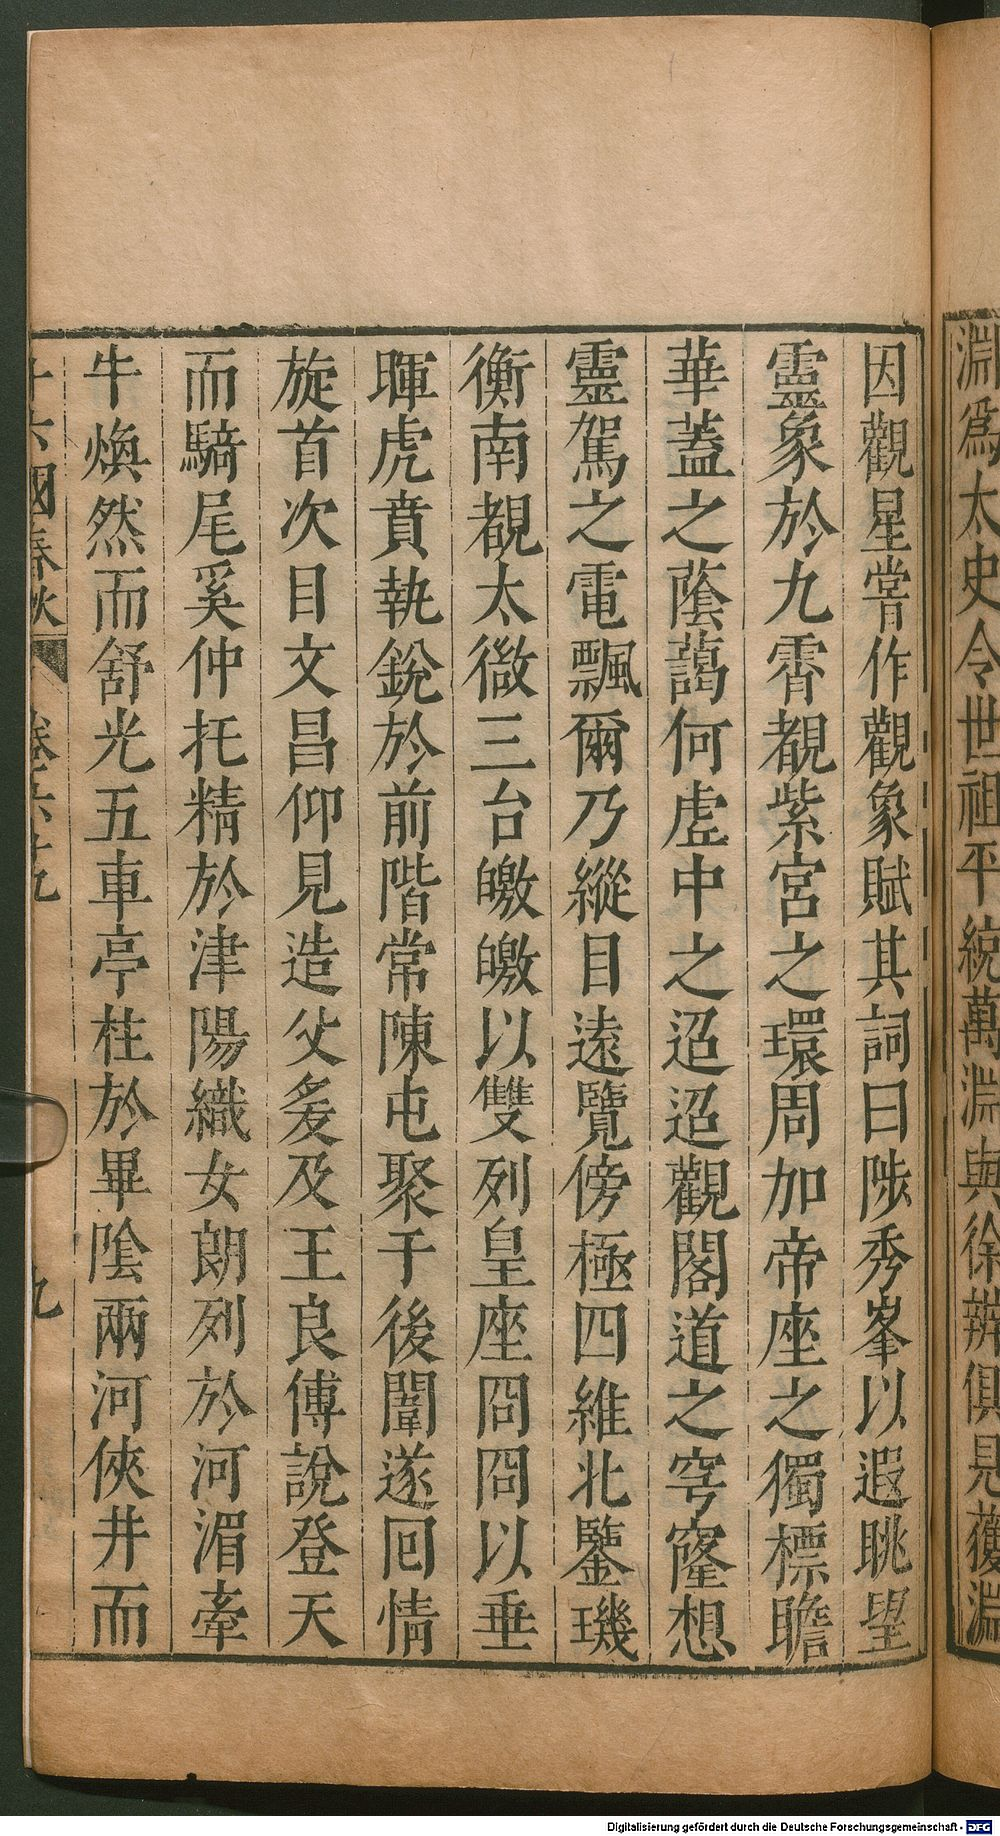 淵爲太史令世祖平統萬淵與徐辨俱見獲淵
因觀星甞作觀象賦其詞曰陟秀峯以遐眺望
靈象於九霄覩紫宮之環周加帝座之獨標瞻
華蓋之蔭藹何虗中之迢迢觀閣道之穹窿想
靈駕之電飄爾乃縱目遠覽傍極四維北鑒璣
衡南覩太微三台皦皦以雙列皇座冏冏以垂
暉虎賁執銳於前階常陳屯聚于後闈遂回情
旋首次目文昌仰見造父爰及王良傅說登天
而騎尾奚仲托精於津陽織女朗列於河湄牽
牛煥然而舒光五車亭柱於畢陰兩河俠井而
十六國春秋 卷六十九 九
Digitalisierung gefördert durch die Deutsche Forschungsgemeinschaft - DFG